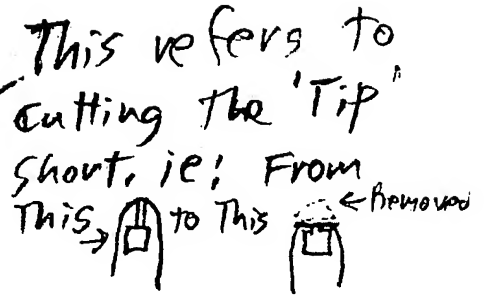 This refers to
cutting the 'Tip'
short, ie: From
This → to This ← Removed